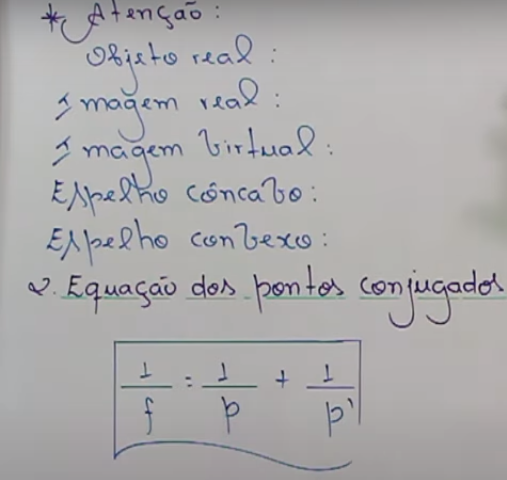 * Atenção:
Objeto real:
Imagem real:
Imagem virtual:
Espelho côncavo:
Espelho convexo:
2. Equação dos pontos conjugados
1/f = 1/p + 1/p'